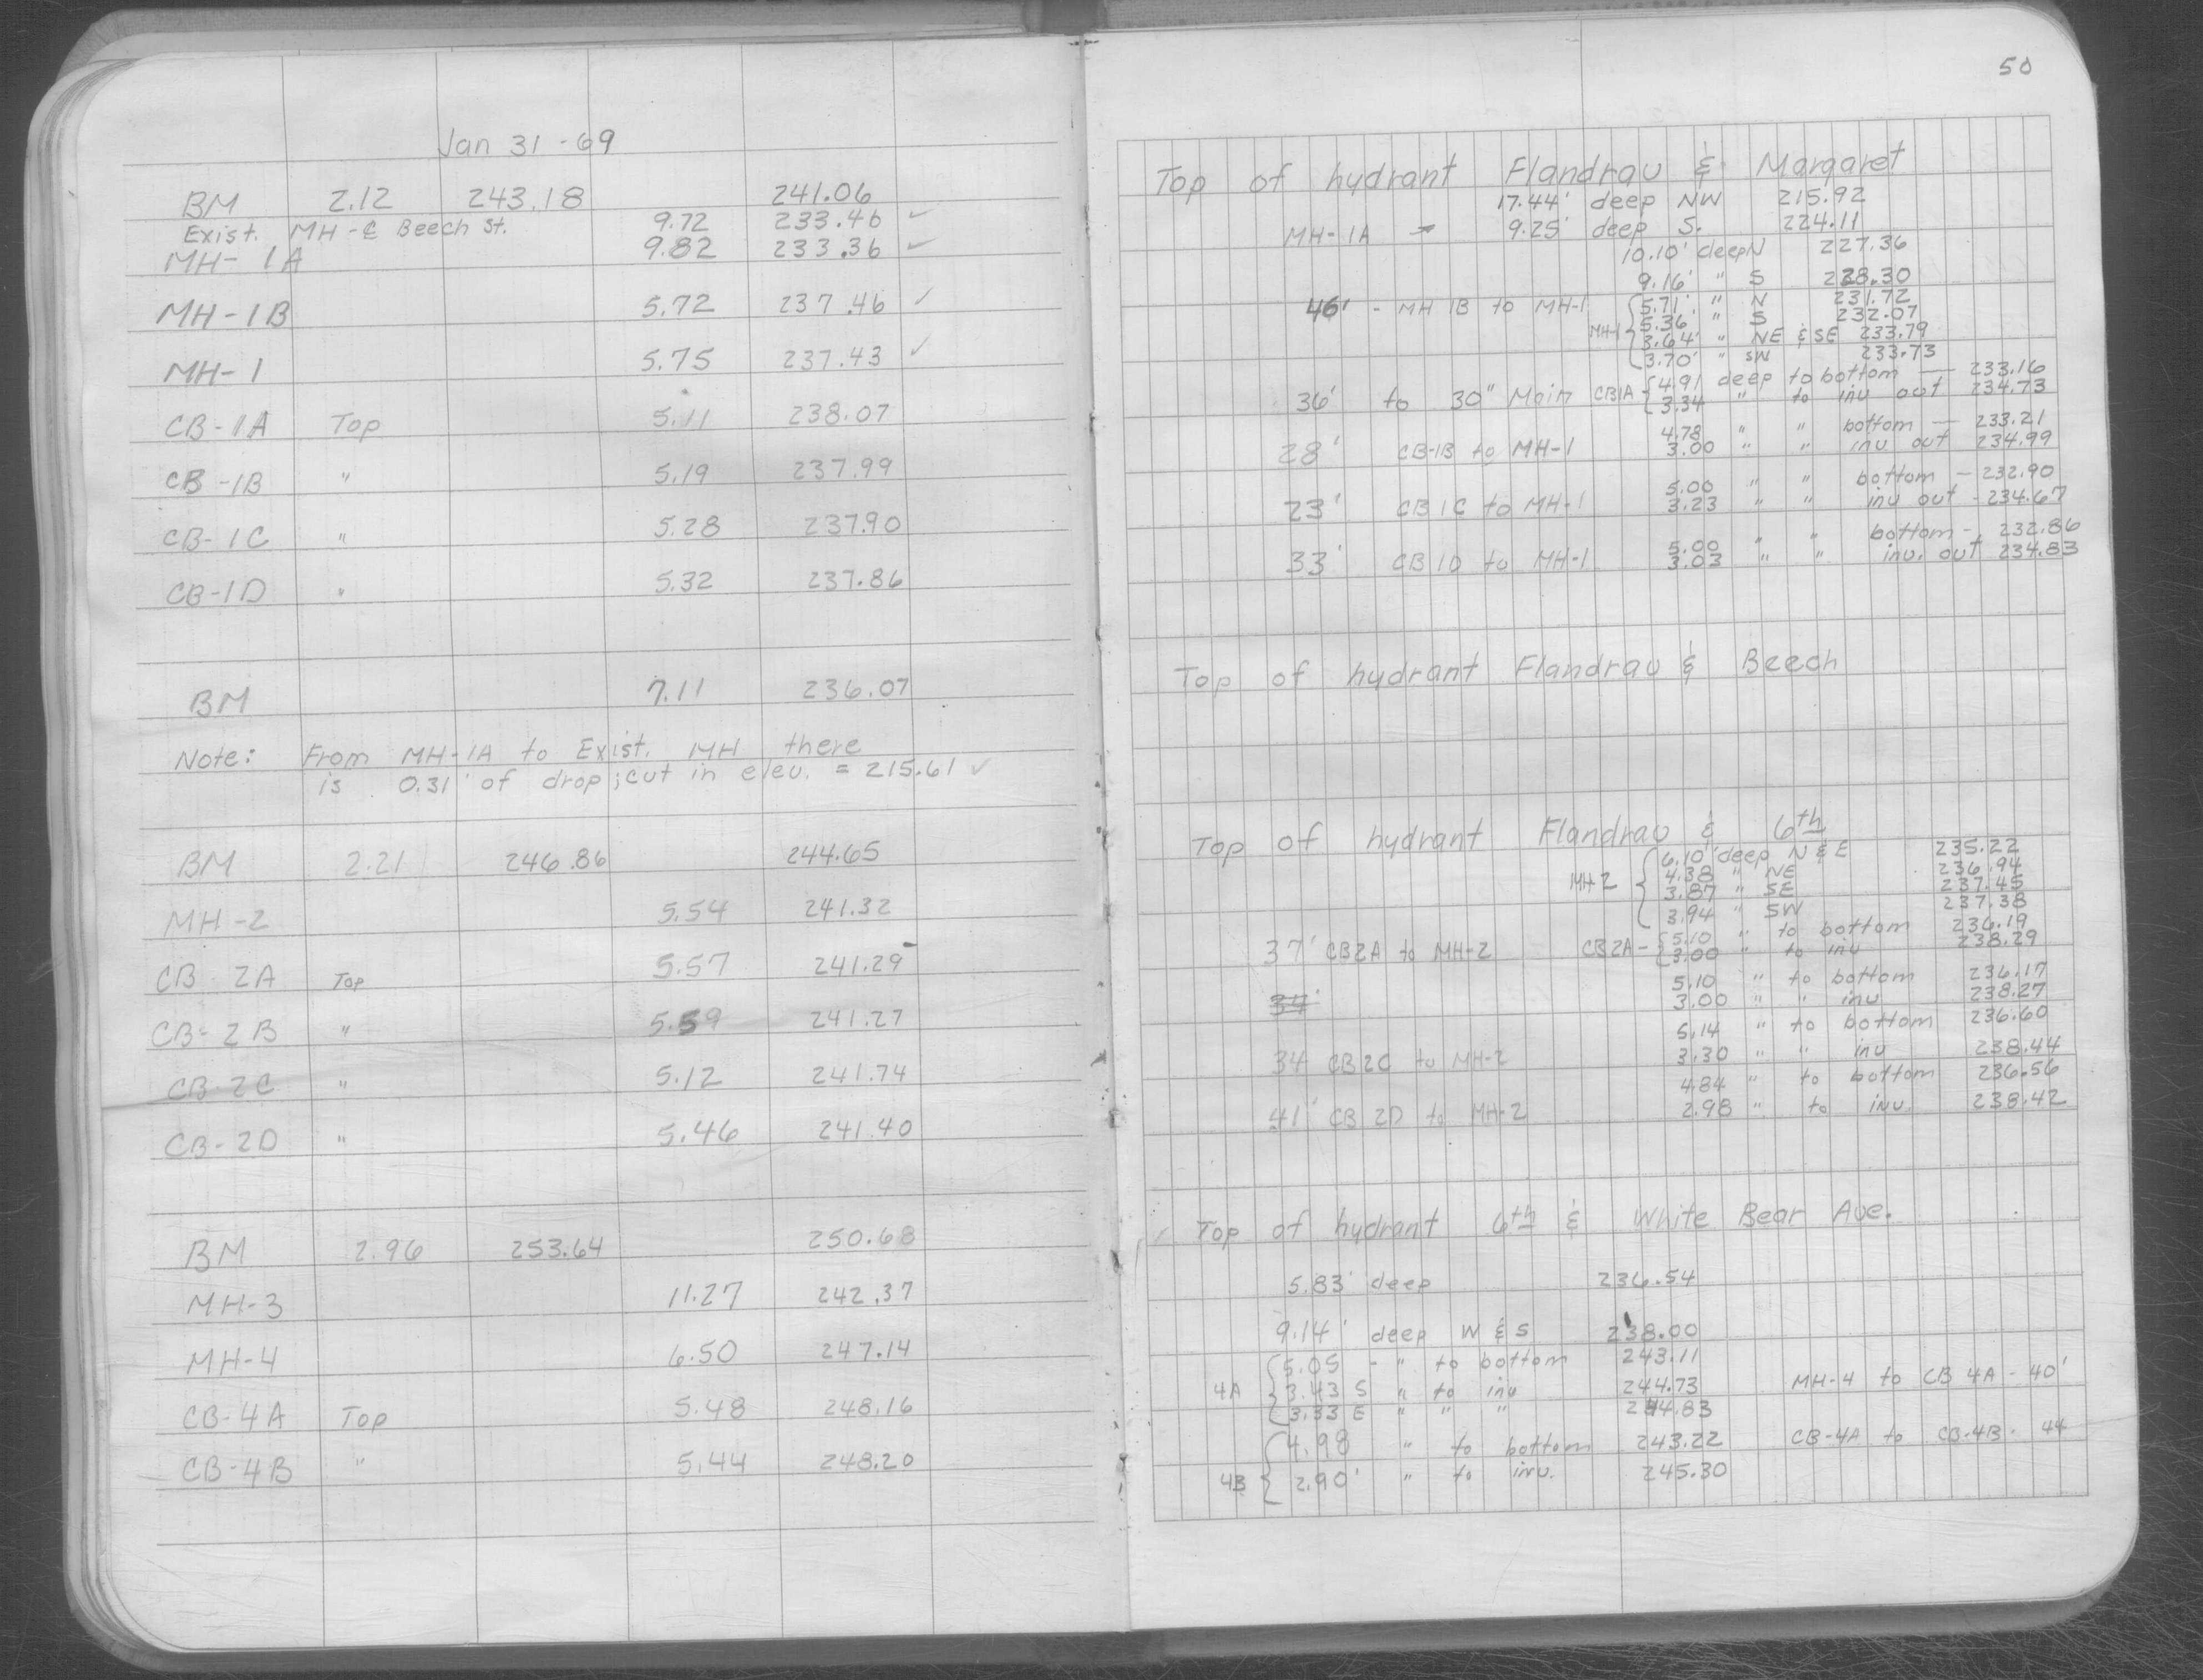 Jan 31 - 69
BM 2.12 243.18 241.06
Exist. MH - ⅊ Beech St. 9.72 233.46 ✓
MH- 1A 9.82 233.36 ✓
MH-1B 5.72 237.46 ✓
MH-1 5.75 237.43 ✓
CB-1A Top 5.11 238.07
CB-1B " 5.19 237.99
CB-1C " 5.28 237.90
CB-1D " 5.32 237.86
BM 7.11 236.07
Note: From MH-1A to Exist. MH there
is 0.31' of drop; cut in elev. = 215.61 ✓
BM 2.21 246.86 244.65
MH-2 5.54 241.32
CB-2A Top 5.57 241.29
CB-2B " 5.59 241.27
CB-2C " 5.12 241.74
CB-2D " 5.46 241.40
BM 2.96 253.64 250.68
MH-3 11.27 242.37
MH-4 6.50 247.14
CB-4A Top 5.48 248.16
CB-4B " 5.44 248.20
50
Top of hydrant Flandrau & Margaret
17.44' deep NW 215.92
MH-1A → 9.25' deep S. 224.11
10.10' deep N 227.36
9.16' " S 228.30
46' - MH 1B to MH-1 5.71' " N 231.72
MH-1 5.36 " S 232.07
3.64' " NE & SE 233.79
3.70' " SW 233.73
36' to 30" Main CB1A - 4.91 deep to bottom — 233.16
3.34 " to inv out 234.73
28' CB-1B to MH-1 4.78 " " bottom — 233.21
3.00 " " inv out 234.99
23' CB 1C to MH-1 5.00 " " bottom - 232.90
3.23 " " inv out - 234.67
33' CB 1D to MH-1 5.00 " " bottom - 232.86
3.03 " " inv. out 234.83
Top of hydrant Flandrau & Beech
Top of hydrant Flandrau & 6th
MH2 6.10' deep N & E 235.22
4.38 " NE 236.94
3.87 " SE 237.45
3.94 " SW 237.38
37' CB2A to MH-2 CB2A - 5.10 " to bottom 236.19
3.00 " to inv 238.29
34'
5.10 " to bottom 236.17
3.00 " " inv 238.27
5.14 " to bottom 236.60
34 CB2C to MH-2 3.30 " " inv 238.44
4.84 " to bottom 236.56
41' CB 2D to MH-2 2.98 " to inv. 238.42
Top of hydrant 6th & White Bear Ave.
5.83' deep 236.54
9.14' deep W & S 238.00
4A 5.05 - " to bottom 243.11
3.43 S " to inv 244.73 MH-4 to CB 4A - 40'
3.33 E " " " 244.83
4B 4.98 " to bottom 243.22 CB-4A to CB-4B - 44
2.90' " to inv. 245.30